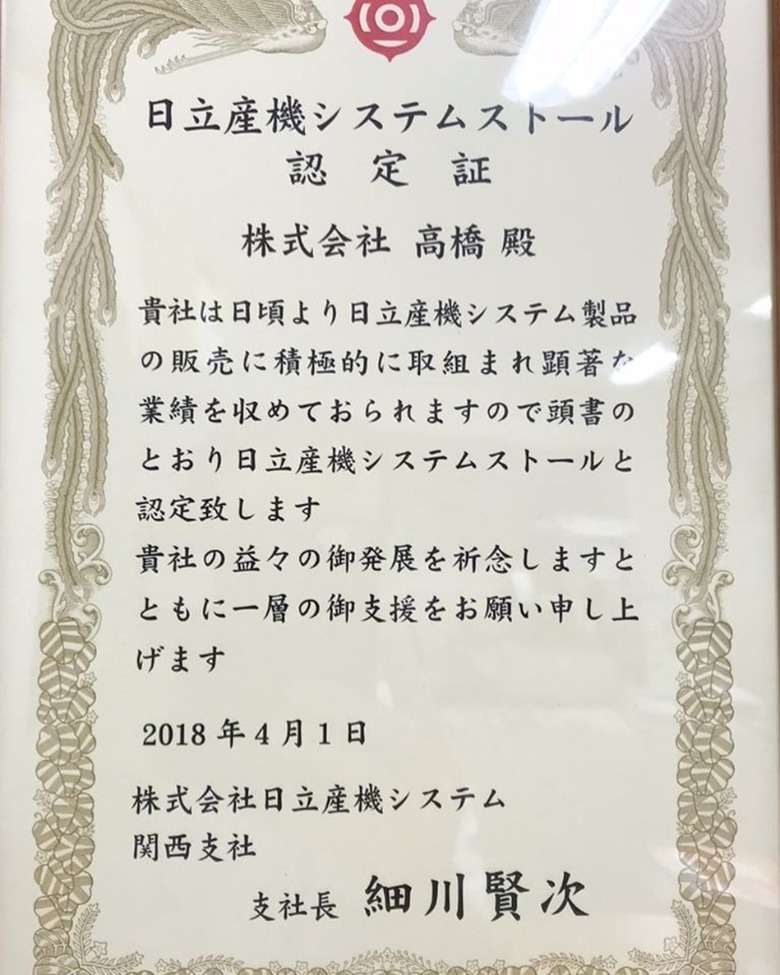 日立産機システムストール
認定証
株式会社 高橋 殿
貴社は日頃より日立産機システム製品
の販売に積極的に取組まれ顕著な
業績を収めておられますので頭書の
とおり日立産機システムストールと
認定致します
貴社の益々の御発展を祈念しますと
ともに一層の御支援をお願い申し上
げます
2018年4月1日
株式会社日立産機システム
関西支社
支社長 細川賢次